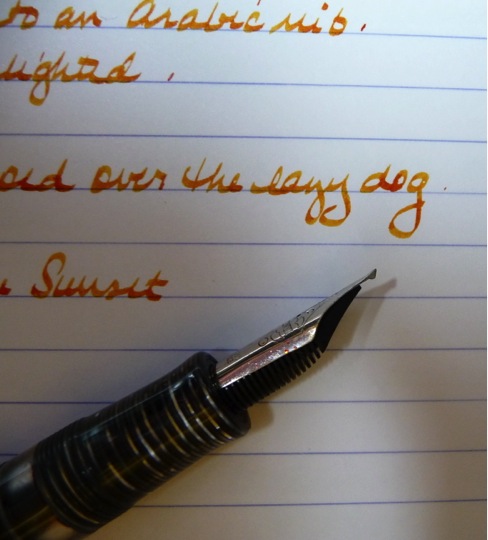 to an Arabic nib.
lighted.
over the lazy dog.
Sunset